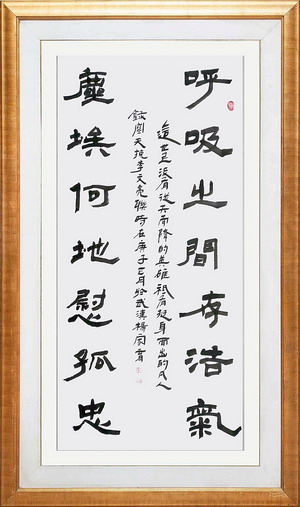 呼吸之間存浩氣
這世上沒有從天而降的英雄祇有挺身而出的凡人
天挽李文亮聯時在庚子月於武漢楊
塵埃何地慰孤忠